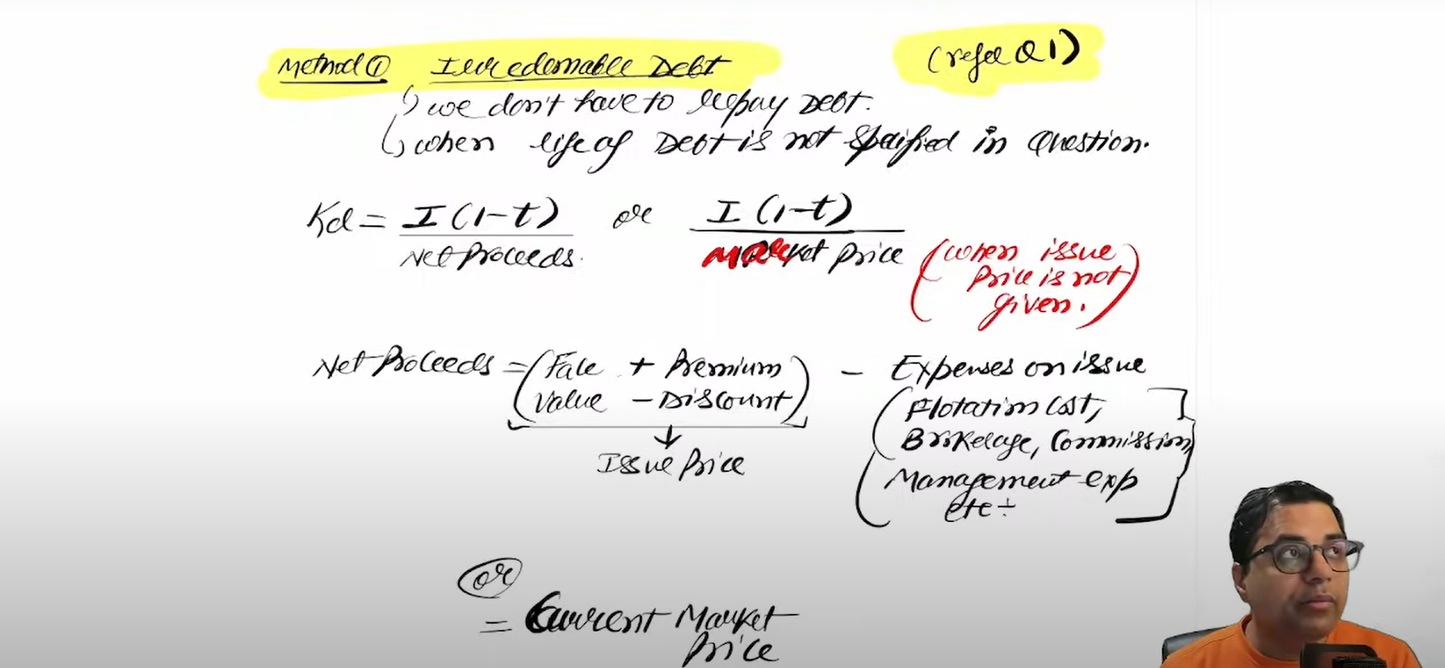 Method ① Irredemable Debt (refer Q 1)
we don't have to repay Debt.
when life of Debt is not specified in Question.
Kd = I (1-t) or I (1-t)
Net Proceeds. Market Price (when issue
Price is not
given.)
Net Proceeds = (Face + Premium) - Expenses on issue
Value - Discount (Flotation Cost,
Brokerage, Commission,
Issue Price
Management exp
etc
or
= Current Market
Price